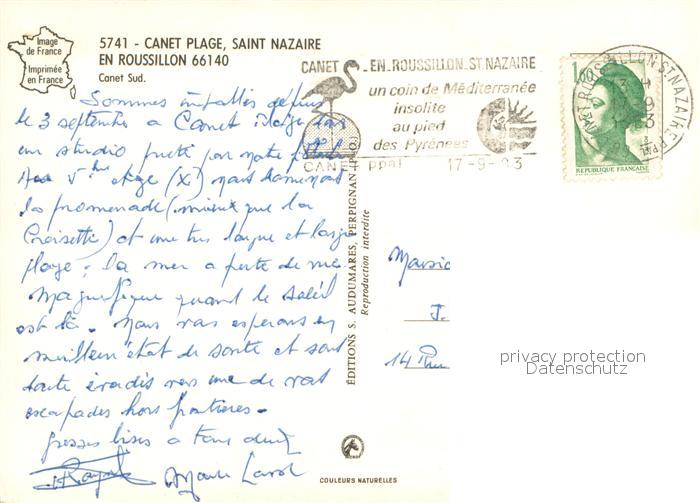 Image
de France
Imprimée
en France
5741 - CANET PLAGE, SAINT NAZAIRE
EN ROUSSILLON 66140
Canet Sud.
CANET EN ROUSSILLON ST NAZAIRE
un coin de Méditerranée
insolite
au pied
des Pyrénées
CANET PPAL 17-9-83
1,60
REPUBLIQUE FRANÇAISE
CANET ROUSSILLON ST NAZAIRE PPAL
Sommes installés depuis
le 3 septembre a Canet Plage dans
un studio prêté par notre
5ème étage (X) nous dominons
la promenade (mieux que la
Croisette) et une très longue et large
plage, la mer a perte de vue
Magnifique quand le soleil
est là. Nous vous espérons en
meilleur état de santé et sans
doute évadés vers une de vos
escapades hors frontières.
grosses bises a tous deux
ÉDITIONS S. AUDUMARES, PERPIGNAN (P.-O.)
Reproduction interdite
J.
14 Rue
privacy protection
Datenschutz
COULEURS NATURELLES